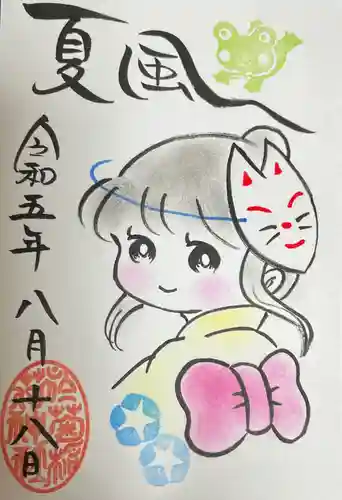 夏風
令和五年八月十八日